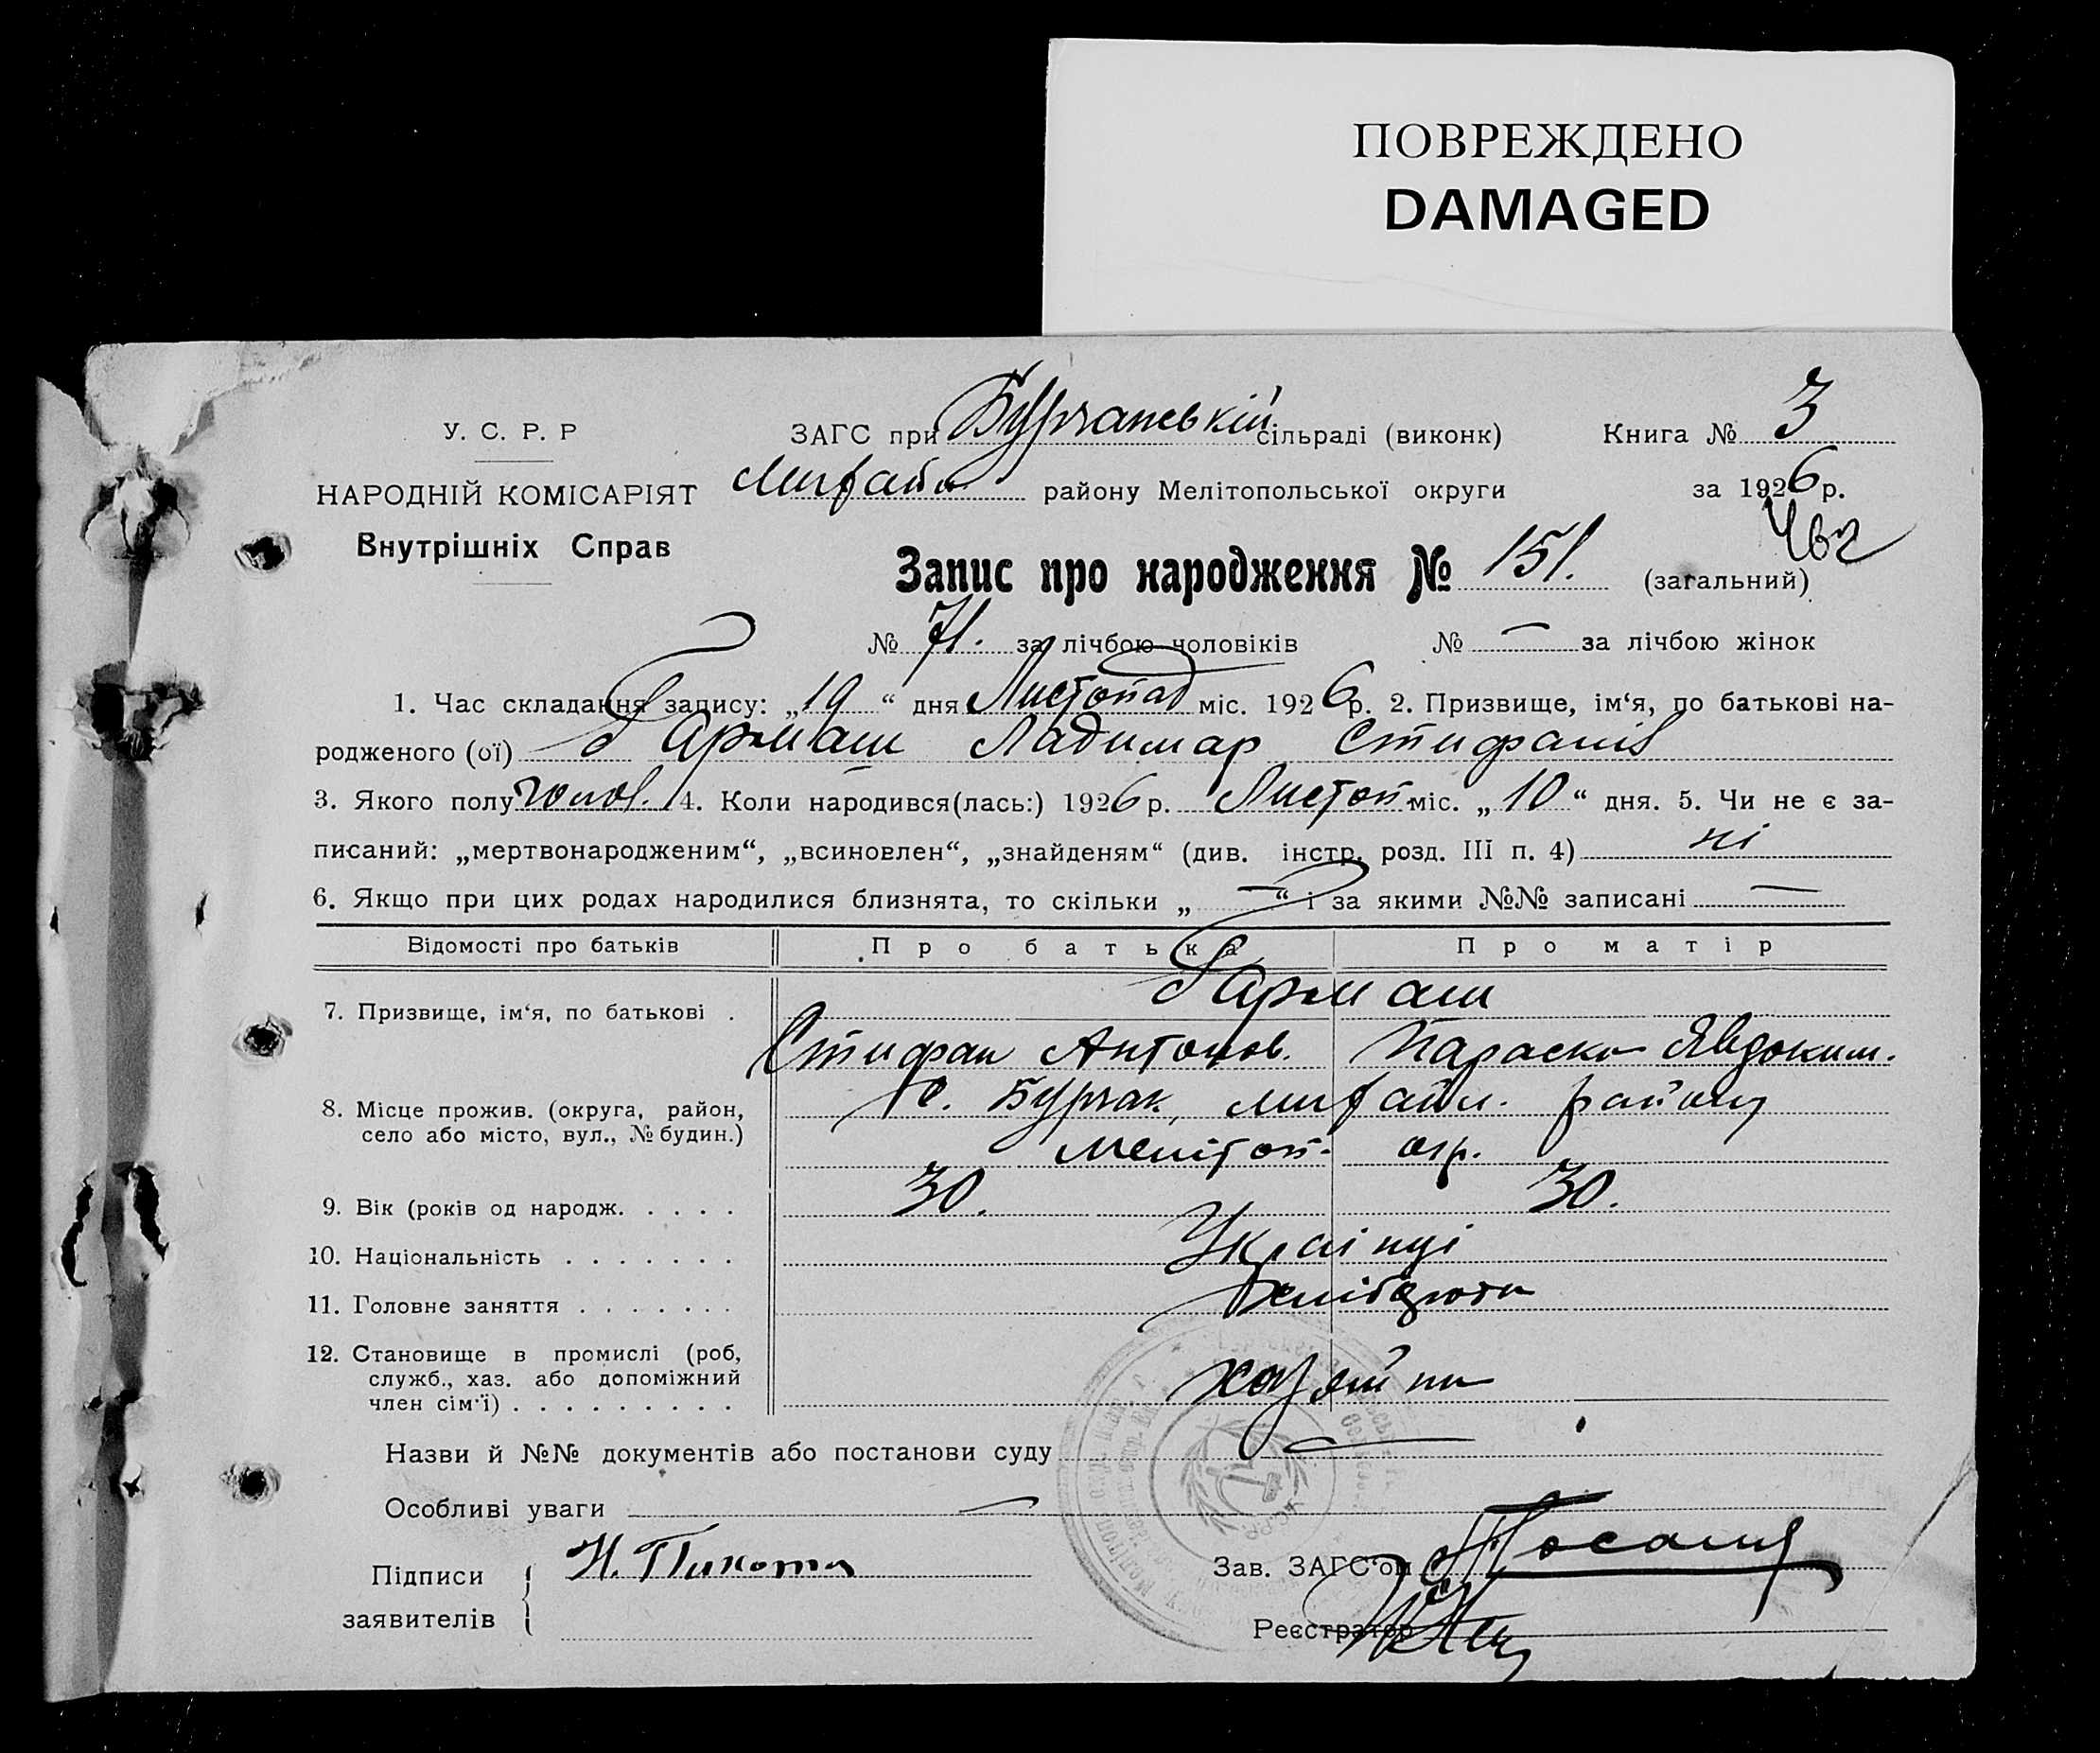 ПОВРЕЖДЕНО
DAMAGED
У. С. Р. Р
НАРОДНІЙ КОМІСАРІЯТ
Внутрішніх Справ
ЗАГС при Бурчанській сільраді (виконк)
Михайл району Мелітопольської округи
Книга № 3
за 1926 р.
Запис про народження № 151. (загальний)
№ 71. за лічбою чоловіків № — за лічбою жінок
1. Час складання запису: „19“ дня Листопад міс. 1926 р. 2. Призвище, ім‘я, по батькові на-
родженого (ої) Гармаш Ладимар Стифанів
3. Якого полу чолов. 4. Коли народився(лась:) 1926 р. Листоп. міс. „10“ дня. 5. Чи не є за-
писаний: „мертвонародженим“, „всиновлен“, „знайденям“ (див. інстр. розд. III п. 4) ні
6. Якщо при цих родах народилися близнята, то скільки „—“ і за якими №№ записані —
Відомості про батьків Про батька Про матір
7. Призвище, ім‘я, по батькові . Гармаш
Стифан Антонов. Параска Явдоким.
8. Місце прожив. (округа, район,
село або місто, вул., № будин.)
с. Бурчак, михайл. району
Меліτоп. окр.
9. Вік (років од народж. . . . . 30. 30.
10. Національність . . . . . . . Українці
11. Головне заняття . . . . . . . Хлібороби
12. Становище в промислі (роб,
служб., хаз. або допоміжний
член сім‘ї) . . . . . . . . . хазяїни
Назви й №№ документів або постанови суду —
Особливі уваги —
Підписи
заявителів
Н. Пикота
Зав. ЗАГС‘ом
Реєстратор